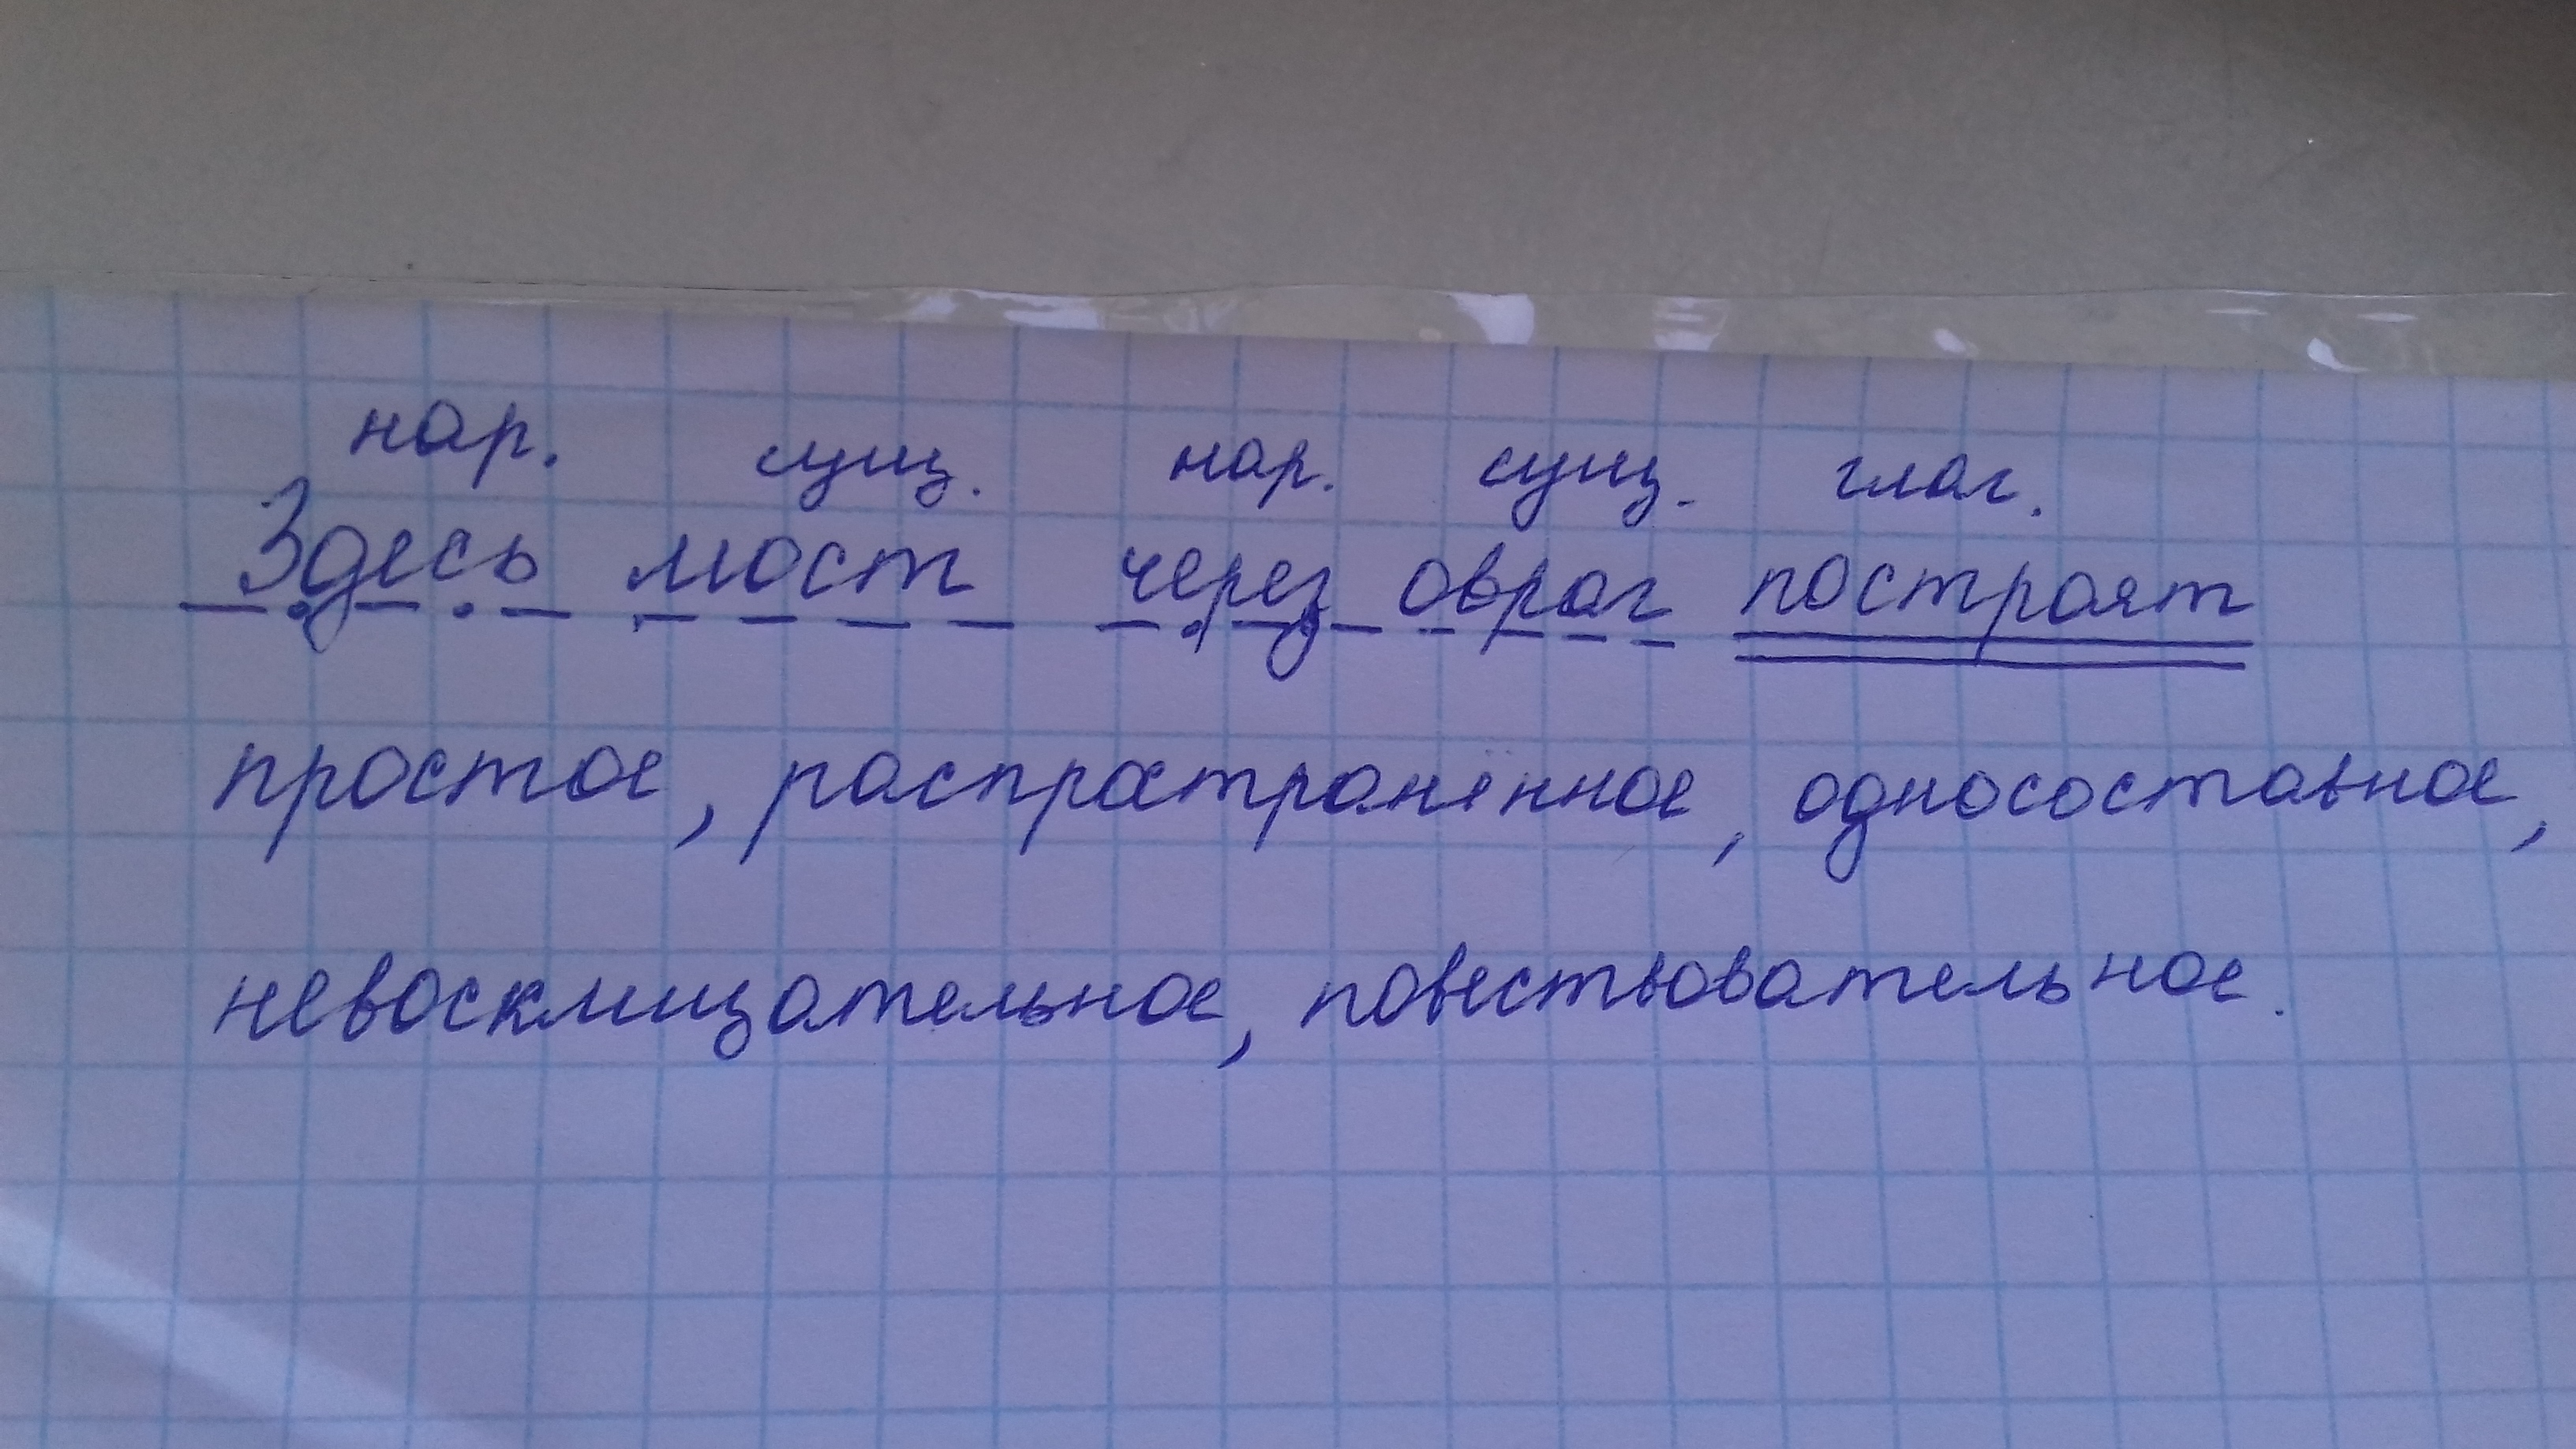 нар. сущ. нар. сущ. глаг.
Здесь мост через овраг построят
простое, распространённое, односоставное,
невосклицательное, повествовательное.